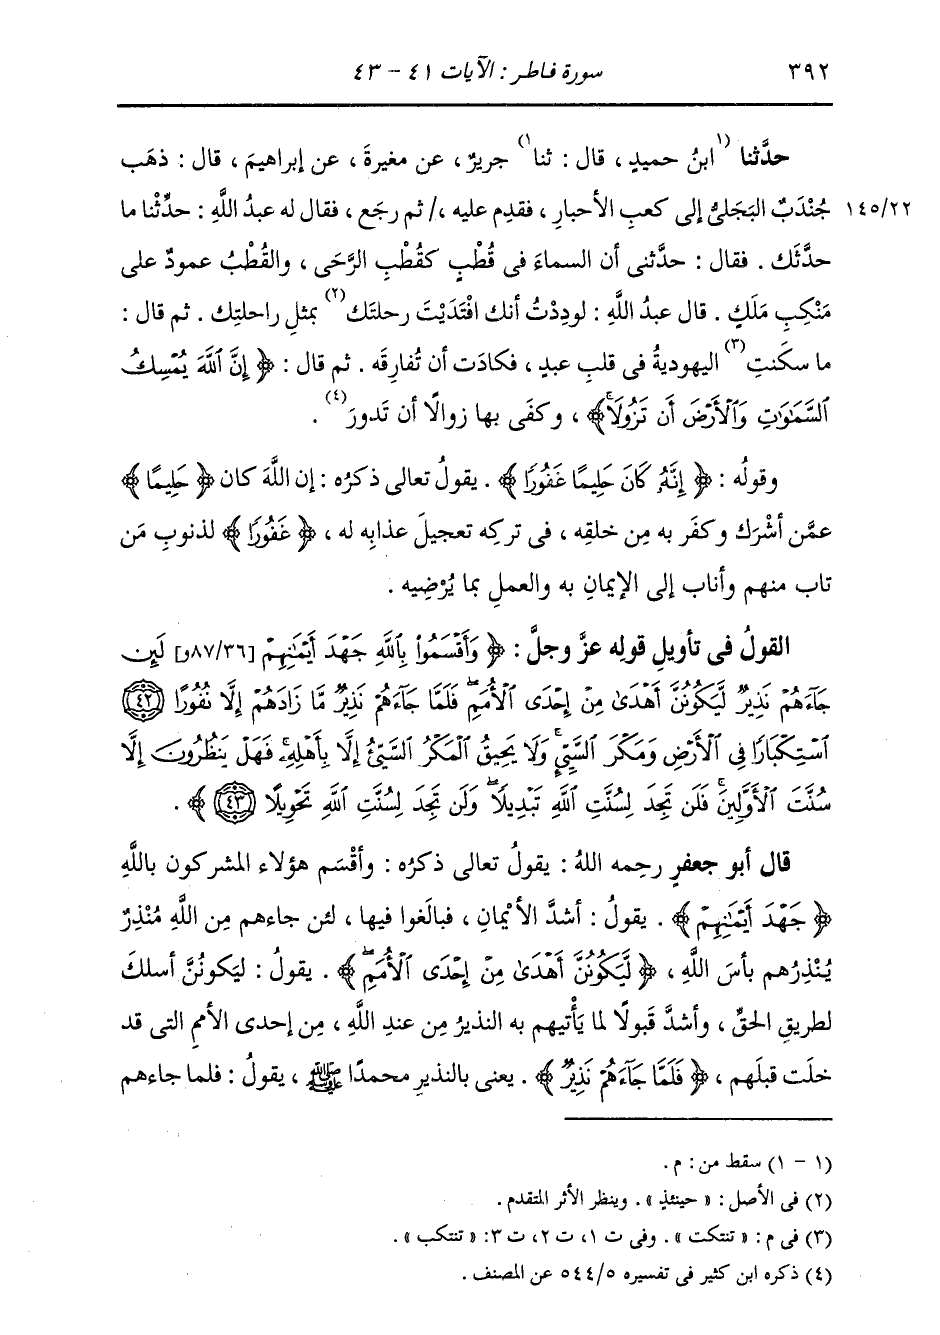 ٣٩٢ سورة فاطر : الآيات ٤١ - ٤٣
حدَّثنا (١ ابنُ حميدٍ ، قال : ثنا ١) جريرٌ ، عن مغيرةَ ، عن إبراهيمَ ، قال : ذهَب
١٤٥/٢٢ جُنْدَبٌ البَجَلىُّ إلى كعبِ الأحبارِ ، فقدِم عليه ،/ ثم رجَع ، فقال له عبدُ اللَّهِ : حدِّثْنا ما
حدَّثَك . فقال : حدَّثنى أن السماءَ فى قُطْبٍ كقُطْبِ الرَّحَى ، والقُطْبُ عمودٌ على
مَنْكِبِ مَلَكٍ . قال عبدُ اللَّهِ : لودِدْتُ أنك افْتَدَيْتَ رحلتَك (٢) بمثلِ راحلتِك . ثم قال :
ما سكَنتِ (٣) اليهوديةُ فى قلبِ عبدٍ ، فكادَت أن تُفارِقَه . ثم قال : ﴿ إِنَّ ٱللَّهَ يُمْسِكُ
ٱلسَّمَٰوَٰتِ وَٱلْأَرْضَ أَن تَزُولَاۚ﴾ ، وكفَى بها زوالًا أن تَدورَ (٤) .
وقولُه : ﴿ إِنَّهُۥ كَانَ حَلِيمًا غَفُورًا ﴾ . يقولُ تعالى ذكرُه : إن اللَّهَ كان ﴿ حَلِيمًا ﴾
عمَّن أشْرَك وكفَر به مِن خلقِه ، فى تركِه تعجيلَ عذابِه له ، ﴿ غَفُورًا ﴾ لذنوبِ مَن
تاب منهم وأناب إلى الإيمانِ به والعملِ بما يُرْضِيه .
القولُ فى تأويلِ قولِه عزَّ وجلَّ : ﴿ وَأَقْسَمُوا۟ بِٱللَّهِ جَهْدَ أَيْمَٰنِهِمْ [٨٧/٣٦و] لَئِن
جَآءَهُمْ نَذِيرٌ لَّيَكُونُنَّ أَهْدَىٰ مِنْ إِحْدَى ٱلْأُمَمِۖ فَلَمَّا جَآءَهُمْ نَذِيرٌ مَّا زَادَهُمْ إِلَّا نُفُورًا ﴿٤٢﴾
ٱسْتِكْبَارًا فِى ٱلْأَرْضِ وَمَكْرَ ٱلسَّيِّئِۚ وَلَا يَحِيقُ ٱلْمَكْرُ ٱلسَّيِّئُ إِلَّا بِأَهْلِهِۦۚ فَهَلْ يَنظُرُونَ إِلَّا
سُنَّتَ ٱلْأَوَّلِينَۚ فَلَن تَجِدَ لِسُنَّتِ ٱللَّهِ تَبْدِيلًاۖ وَلَن تَجِدَ لِسُنَّتِ ٱللَّهِ تَحْوِيلًا ﴿٤٣﴾ ﴾ .
قال أبو جعفرٍ رحِمه اللهُ : يقولُ تعالى ذكرُه : وأقْسَم هؤلاء المشركون باللَّهِ
﴿ جَهْدَ أَيْمَٰنِهِمْ ﴾ . يقولُ : أشدَّ الأيْمانِ ، فبالَغوا فيها ، لئن جاءهم مِن اللَّهِ مُنْذِرٌ
يُنْذِرُهم بأسَ اللَّهِ ، ﴿ لَّيَكُونُنَّ أَهْدَىٰ مِنْ إِحْدَى ٱلْأُمَمِۖ ﴾ . يقولُ : ليَكونُنَّ أسلكَ
لطريقِ الحقِّ ، وأشدَّ قبولًا لما يَأْتيهم به النذيرُ مِن عندِ اللَّهِ ، مِن إحدى الأممِ التى قد
خلَت قبلَهم ، ﴿ فَلَمَّا جَآءَهُمْ نَذِيرٌ ﴾ . يعنى بالنذيرِ محمدًا ﷺ ، يقولُ : فلما جاءهم
(١ - ١) سقط من : م .
(٢) فى الأصل : « حينئذٍ » . وينظر الأثر المتقدم .
(٣) فى م : « تنتكت » . وفى ت ١، ت ٢، ت ٣: « تنتكب » .
(٤) ذكره ابن كثير فى تفسيره ٥٤٤/٥ عن المصنف .